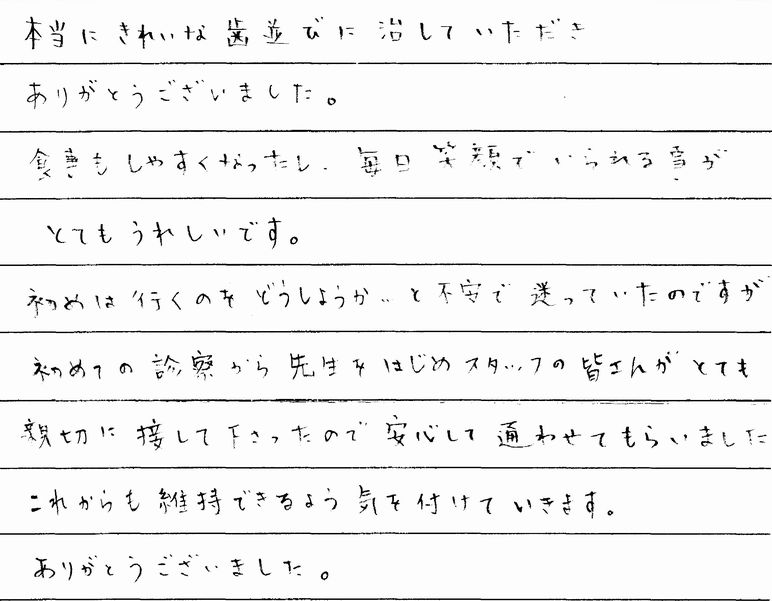 本当にきれいな歯並びに治していただき
ありがとうございました。
食事もしやすくなったし、毎日笑顔でいられる事が
とてもうれしいです。
初めは行くのをどうしようか‥と不安で迷っていたのですが
初めての診察から先生をはじめスタッフの皆さんがとても
親切に接して下さったので安心して通わせてもらいました
これからも維持できるよう気を付けていきます。
ありがとうございました。